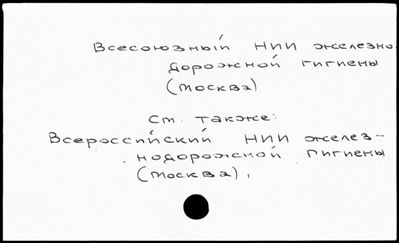 Всесоюзный НИИ железно-
дорожной гигиены
(Москва)
См. также:
Всероссийский НИИ желез-
нодорожной гигиены
(Москва).